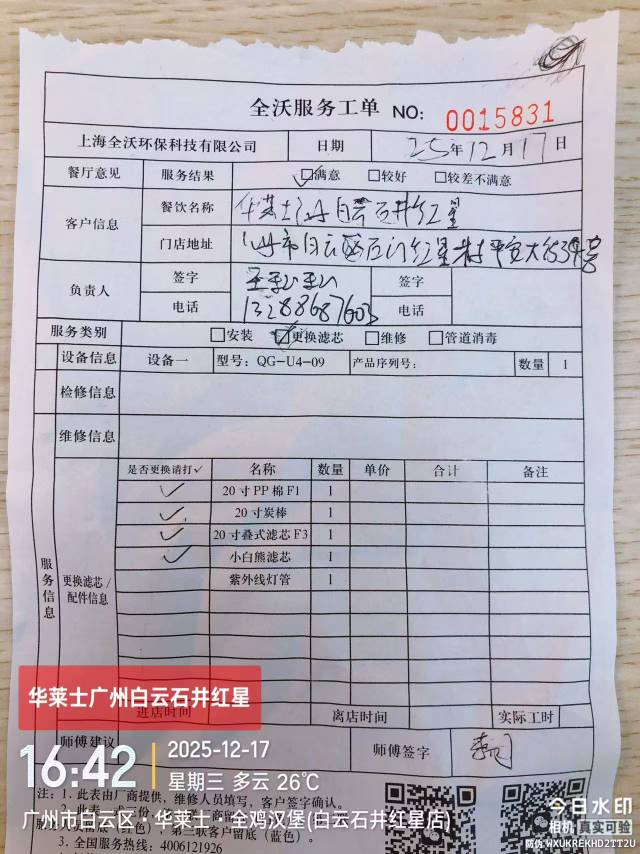 全沃服务工单 NO: 0015831
上海全沃环保科技有限公司 日期 25年12月17日
餐厅意见 服务结果 ☑满意 □较好 □较差不满意
客户信息 餐饮名称 华莱士广州白云石井红星
门店地址 广州市白云区石门红星村平安大街
负责人 签字 签字
电话 13288687603 电话
服务类别 □安装 ☑更换滤芯 □维修 □管道消毒
设备信息 设备一 型号: QG-U4-09 产品序列号: 数量 1
检修信息
维修信息
服务信息
更换滤芯/配件信息
是否更换请打✓ 名称 数量 单价 合计 备注
✓ 20寸PP棉F1 1
✓ 20寸炭棒 1
✓ 20寸叠式滤芯F3 1
✓ 小白熊滤芯 1
紫外线灯管 1
进店时间 离店时间 实际工时
师傅建议 师傅签字
华莱士广州白云石井红星
16:42 2025-12-17
星期三 多云 26℃
广州市白云区·华莱士·全鸡汉堡(白云石井红星店)
注: 1. 此表由厂商提供，维修人员填写，客户签字确认。
3. 全国服务热线: 4006121926
今日水印
相机 真实可验
防伪 WXUKREKHD2TT2U